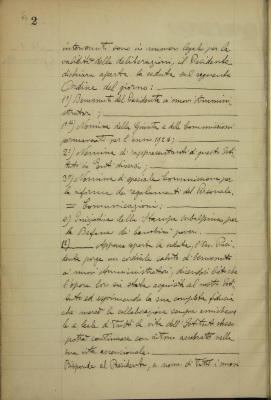 2
intervenuti sono in numero legale per la
validità delle deliberazioni, il Presidente
dichiara aperta la seduta sul seguente
Ordine del giorno:
1º) Benvenuto del Presidente ai nuovi Amministratori;
1º) Nomina della Giunta e delle Commissioni
permanenti per l'anno 1924;
2º) Nomina di rappresentanti di questo Istituto
in Enti diversi;
3º) Nomina di speciale Commissione per
la riforma dei regolamenti del Personale.
= Comunicazioni:
a) Iniziativa della Stampa subalpina per
la Befana dei bambini poveri.
Appena aperta la seduta, l'On. Presidente
porge un cordiale saluto di benvenuto
ai nuovi Amministratori, dicendosi lieto che
l'opera loro sia stata acquistata al nostro Istituto
ed esprimendo la sua completa fiducia
che mercè la collaborazione sempre
e leale di tutti la vita dell'Istituto stesso
potrà continuare con ritmo accelerato nella
sua vita ascensionale.
Risponde al Presidente, a nome di tutti i nuovi